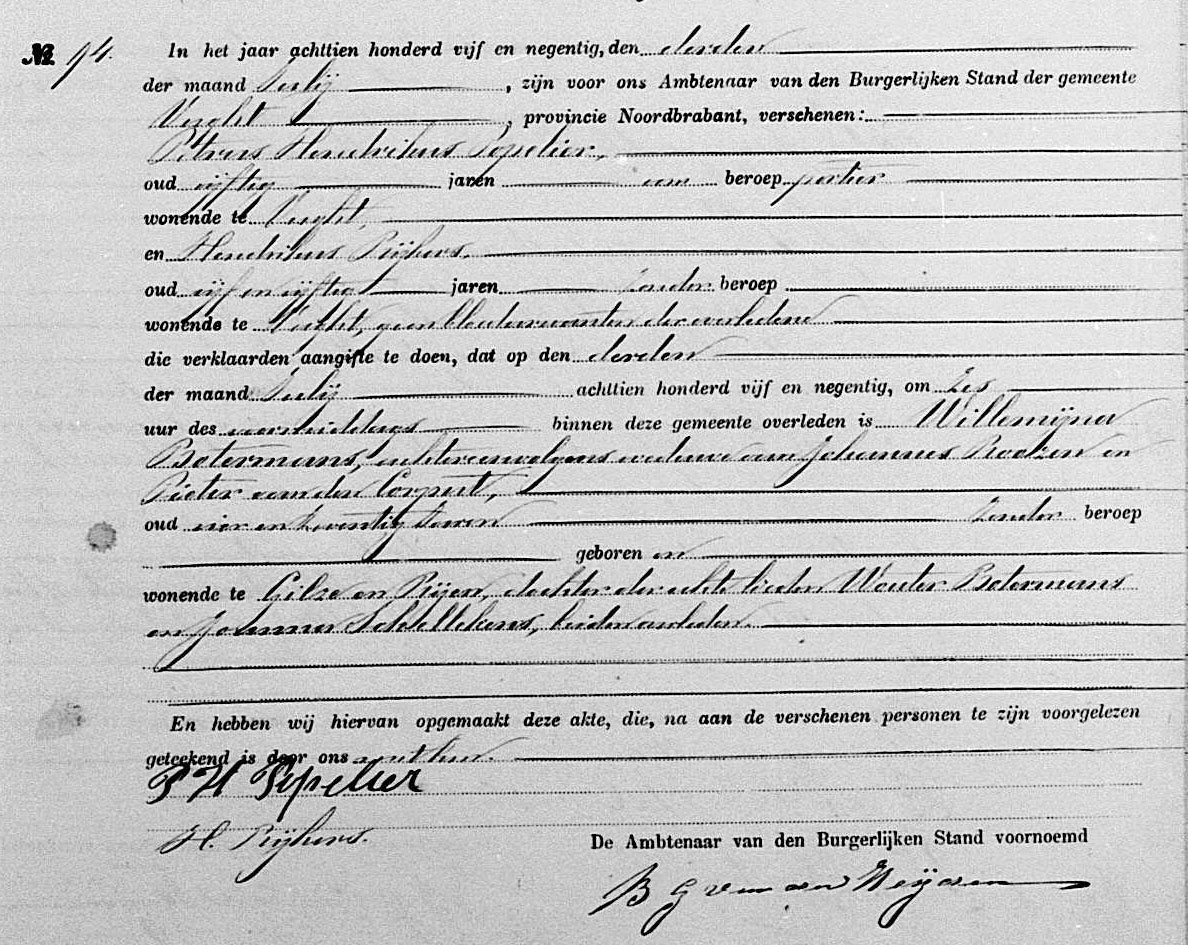 No 94. In het jaar achttien honderd vijf en negentig, den derden
der maand Julij, zijn voor ons Ambtenaar van den Burgerlijken Stand der gemeente
Vught, provincie Noordbrabant, verschenen:
Petrus Hendrikus Pepelier,
oud vijftig jaren van beroep portier
wonende te Vught,
en Hendrikus Rijkers,
oud vijf en vijftig jaren zonder beroep
wonende te Vught, geen bloedverwanten der overledene
die verklaarden aangifte te doen, dat op den derden
der maand Julij achttien honderd vijf en negentig, om zes
uur des voormiddags binnen deze gemeente overleden is Willemijna
Botermans, achtereenvolgens weduwe van Johannes Rooken en
Pieter van den Corput,
oud vier en zeventig jaren zonder beroep
geboren en
wonende te Gilze en Rijen, dochter der echtelieden Wouter Botermans
en Joanna Schellekens, beiden overleden.
En hebben wij hiervan opgemaakt deze akte, die, na aan de verschenen personen te zijn voorgelezen
geteekend is door ons met hen.
P H Pepelier
H. Rijkers.
De Ambtenaar van den Burgerlijken Stand voornoemd
B G van der Heijden